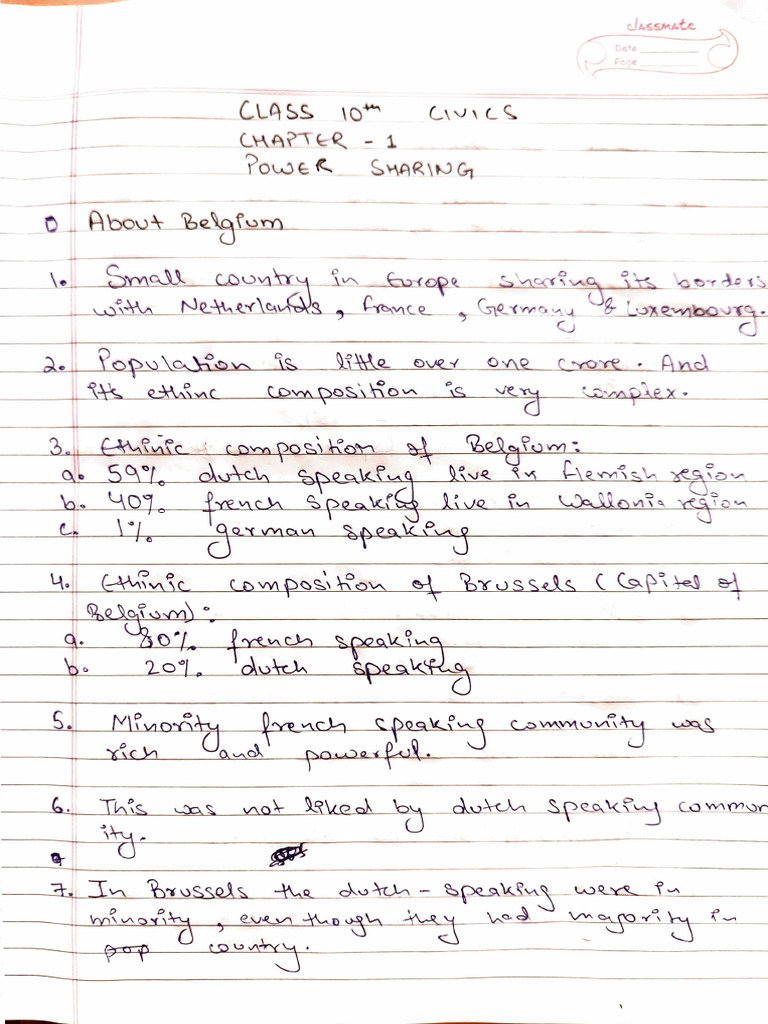 classmate
Date
Page
CLASS 10th CIVICS
CHAPTER - 1
POWER SHARING
About Belgium
1. Small country in Europe sharing its borders
with Netherlands, france, Germany & Luxembourg.
2. Population is little over one crore. And
its ethinc composition is very complex.
3. Ethinic composition of Belgium:
a. 59% dutch speaking live in flemish region
b. 40% french speaking live in Wallonia region
c. 1% german speaking
4. Ethinic composition of Brussels (Capital of
Belgium):
a. 80% french speaking
b. 20% dutch speaking
5. Minority french speaking community was
rich and powerful.
6. This was not liked by dutch speaking commun
ity.
7. In Brussels the dutch-speaking were in
minority, even though they had majority in
pop country.